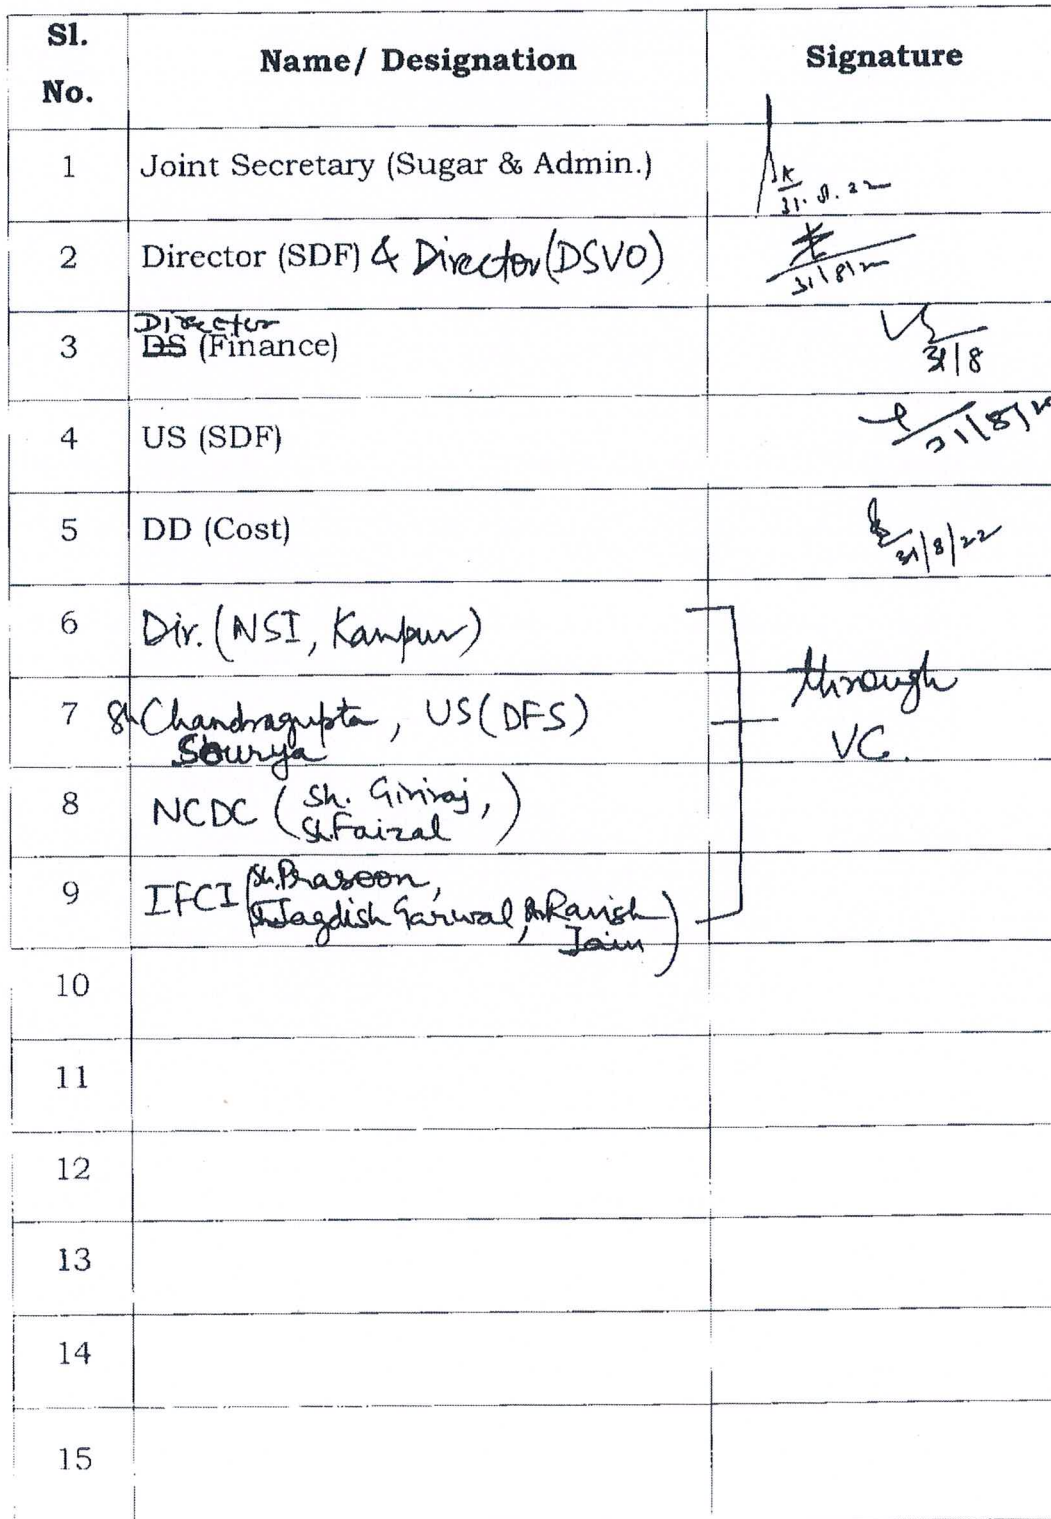 Sl. No. Name/ Designation Signature
1 Joint Secretary (Sugar & Admin.) 31.8.22
2 Director (SDF) & Director (DSVO) 31/8/22
Director
3 DS (Finance) 31/8
4 US (SDF) 31/8/22
5 DD (Cost) 31/8/22
6 Dir. (NSI, Kanpur)
through
7 Sh Chandragupta, US (DFS)
Sourya VC.
8 NCDC (Sh. Giriraj,
Sh Faizal)
9 IFCI (Sh. Prasoon,
Sh Jagdish Garwal, Sh Ravish
Jain)
10
11
12
13
14
15